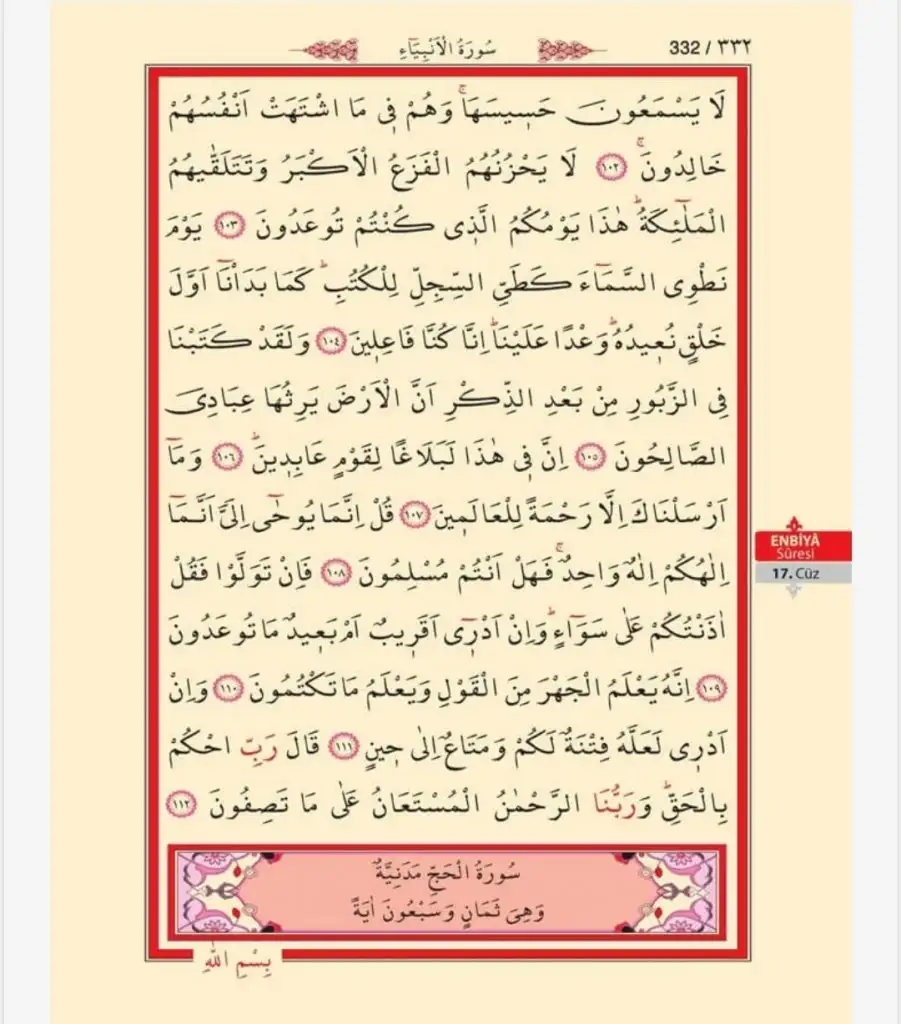 332 / ٣٣٢
سُورَةُ الْاَنْبِيَٓاءِ
لَا يَسْمَعُونَ حَسٖيسَهَاۚ وَهُمْ فٖى مَا اشْتَهَتْ اَنْفُسُهُمْ
خَالِدُونَۚ ﴿١٠٢﴾ لَا يَحْزُنُهُمُ الْفَزَعُ الْاَكْبَرُ وَتَتَلَقّٰيهُمُ
الْمَلٰٓئِكَةُۜ هٰذَا يَوْمُكُمُ الَّذٖى كُنْتُمْ تُوعَدُونَ ﴿١٠٣﴾ يَوْمَ
نَطْوِى السَّمَٓاءَ كَطَىِّ السِّجِلِّ لِلْكُتُبِۜ كَمَا بَدَاْنَٓا اَوَّلَ
خَلْقٍ نُعٖيدُهُۜ وَعْدًا عَلَيْنَاۜ اِنَّا كُنَّا فَاعِلٖينَ ﴿١٠٤﴾ وَلَقَدْ كَتَبْنَا
فِى الزَّبُورِ مِنْ بَعْدِ الذِّكْرِ اَنَّ الْاَرْضَ يَرِثُهَا عِبَادِىَ
الصَّالِحُونَ ﴿١٠٥﴾ اِنَّ فٖى هٰذَا لَبَلَاغًا لِقَوْمٍ عَابِدٖينَۜ ﴿١٠٦﴾ وَمَٓا
اَرْسَلْنَاكَ اِلَّا رَحْمَةً لِلْعَالَمٖينَ ﴿١٠٧﴾ قُلْ اِنَّمَا يُوحٰٓى اِلَىَّ اَنَّمَٓا
اِلٰهُكُمْ اِلٰهٌ وَاحِدٌۚ فَهَلْ اَنْتُمْ مُسْلِمُونَ ﴿١٠٨﴾ فَاِنْ تَوَلَّوْا فَقُلْ
اٰذَنْتُكُمْ عَلٰى سَوَٓاءٍۜ وَاِنْ اَدْرٖٓى اَقَرٖيبٌ اَمْ بَعٖيدٌ مَا تُوعَدُونَ
﴿١٠٩﴾ اِنَّهُ يَعْلَمُ الْجَهْرَ مِنَ الْقَوْلِ وَيَعْلَمُ مَا تَكْتُمُونَ ﴿١١٠﴾ وَاِنْ
اَدْرٖى لَعَلَّهُ فِتْنَةٌ لَكُمْ وَمَتَاعٌ اِلٰى حٖينٍ ﴿١١١﴾ قَالَ رَبِّ احْكُمْ
بِالْحَقِّۜ وَرَبُّنَا الرَّحْمٰنُ الْمُسْتَعَانُ عَلٰى مَا تَصِفُونَ ﴿١١٢﴾
سُورَةُ الْحَجِّ مَدَنِيَّةٌ
وَهِىَ ثَمَانٍ وَسَبْعُونَ اٰيَةً
بِسْمِ اللّٰهِ
ENBİYÂ
Sûresi
17. Cüz